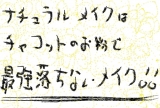 ナチュラルメイクは
チャコットのお粉で
最強落ちないメイク!!